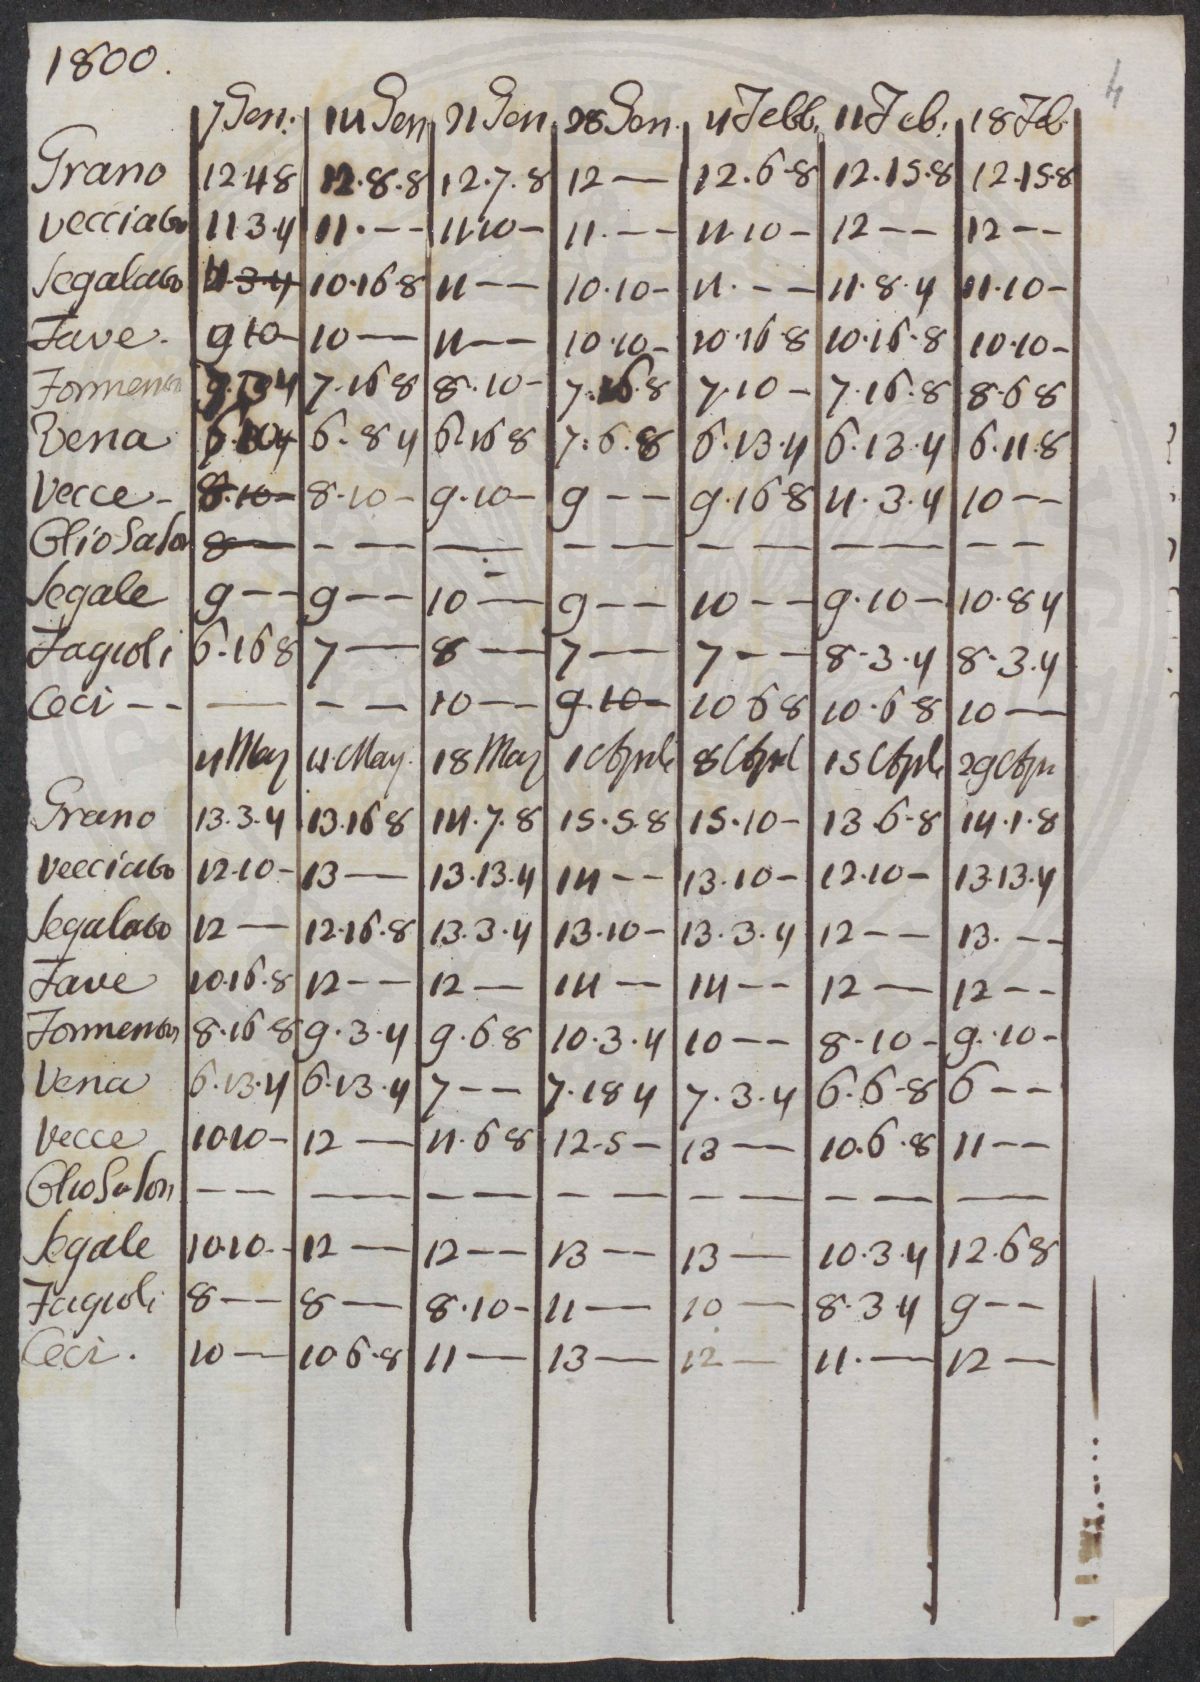 1800.
4
7 Gen. 14 Gen 21 Gen 28 Gen. 4 Febb. 11 Feb. 18 Feb
Grano 12 4 8 12.8.8 12.7.8 12 — 12.6-8 12.15.8 12.15.8
Vecciato 11.3.4 11. - - 11.10 - 11. - - 11.10 - 12 - - 12 - -
Segalato 11.3.4 10.16.8 11 - - 10.10 - 11. - - 11.8.4 11.10 -
Fave. 9 10 - 10 — 11 — 10.10 - 10.16 8 10.16.8 10.10 -
Formenton 7.16 8 8.10 - 7.16.8 7.10 - 7.16.8 8.6 8
Vena 6.8 4 6.16 8 7.6.8 6.13.4 6.13.4 6.11.8
Vecce - 8.10 - 8.10 - 9.10 - 9 - - 9.16 8 11.3.4 10 - -
Olio Sason 8 — - - - — - - - - - - — - - -
Segale 9 - - 9 - - 10 — 9 - - 10 - - 9.10 - 10.8 4
Fagioli 6.16 8 7 — 8 — 7 — 7 - - 8.3.4 8.3.4
Ceci - - — - - 10 - - 9.10 - 10 6 8 10.6 8 10 —
4 Marz 11. Marz. 18 Marz 1 Aprile 8 April 15 Aprile 29 Apri
Grano 13.3.4 13.16 8 14.7.8 15.5.8 15.10 - 13.6-8 14.1.8
Vecciato 12.10 - 13 — 13.13.4 14 - - 13.10 - 12.10 - 13.13.4
Segalato 12 — 12.16.8 13.3.4 13.10 - 13.3.4 12 - - 13. - -
Fave 10.16.8 12 - - 12 — 14 — 14 - - 12 — 12 - -
Formenton 8.16 8 9.3.4 9.6 8 10.3.4 10 - - 8.10 - 9.10 -
Vena 6.13.4 6.13.4 7 - - 7.18 4 7.3.4 6.6-8 6 - -
Vecce 10.10 - 12 — 11.6 8 12.5 - 13 — 10.6.8 11 - -
Olio Sason - - — - - - - - - - - —
Segale 10.10. - 12 — 12 - - 13 - - 13 — 10.3.4 12.6 8
Fagioli 8 - - 8 — 8.10 - 11 — 10 — 8.3 4 9 - -
Ceci. 10 — 10 6.8 11 — 13 — 12 — 11. — 12 —